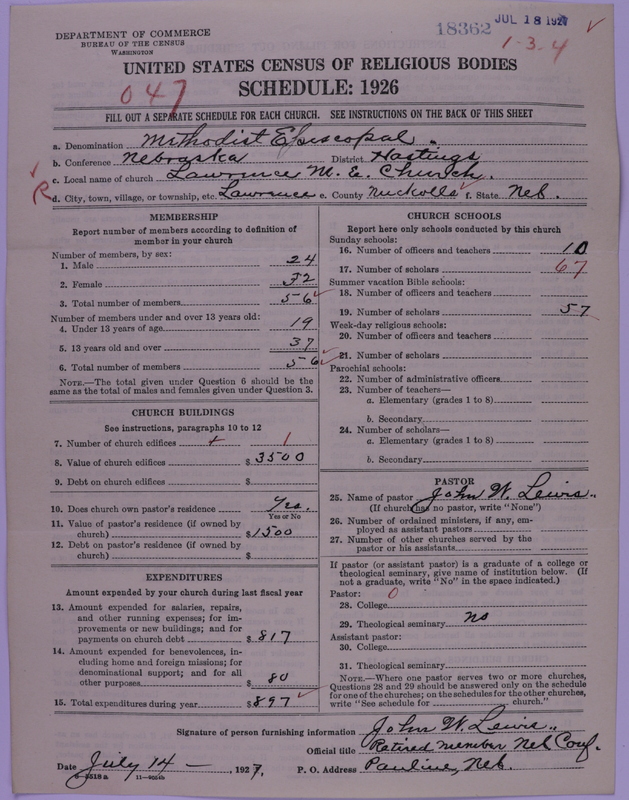 DEPARTMENT OF COMMERCE
BUREAU OF THE CENSUS
WASHINGTON
18362
JUL 18 1927
1-3-4
UNITED STATES CENSUS OF RELIGIOUS BODIES
SCHEDULE: 1926
047
FILL OUT A SEPARATE SCHEDULE FOR EACH CHURCH. SEE INSTRUCTIONS ON THE BACK OF THIS SHEET
a. Denomination Methodist Episcopal.
b. Conference Nebraska District Hastings
c. Local name of church Lawrence M. E. Church.
R
d. City, town, village, or township, etc. Lawrence e. County Nuckolls f. State Neb.
MEMBERSHIP
Report number of members according to definition of
member in your church
Number of members, by sex:
1. Male 24
2. Female 32
3. Total number of members 56
Number of members under and over 13 years old:
4. Under 13 years of age 19
5. 13 years old and over 37
6. Total number of members 56
NOTE.—The total given under Question 6 should be
same as the total of males and females given under Question 3.
CHURCH BUILDINGS
See instructions, paragraphs 10 to 12
7. Number of church edifices 1
8. Value of church edifices $ 3500
9. Debt on church edifices $
10. Does church own pastor's residence Yes.
Yes or No
11. Value of pastor's residence (if owned by
church) $ 1500
12. Debt on pastor's residence (if owned by
church) $
EXPENDITURES
Amount expended by your church during last fiscal year
13. Amount expended for salaries, repairs,
and other running expenses; for im-
provements or new buildings; and for
payments on church debt $ 817
14. Amount expended for benevolences, in-
cluding home and foreign missions; for
denominational support; and for all
other purposes $ 80
15. Total expenditures during year $ 897
CHURCH SCHOOLS
Report here only schools conducted by this church
Sunday schools:
16. Number of officers and teachers 10
17. Number of scholars 67
Summer vacation Bible schools:
18. Number of officers and teachers
19. Number of scholars 57
Week-day religious schools:
20. Number of officers and teachers
21. Number of scholars
Parochial schools:
22. Number of administrative officers
23. Number of teachers—
a. Elementary (grades 1 to 8)
b. Secondary
24. Number of scholars—
a. Elementary (grades 1 to 8)
b. Secondary
PASTOR
25. Name of pastor John W. Lewis
(If church has no pastor, write "None")
26. Number of ordained ministers, if any, em-
ployed as assistant pastors
27. Number of other churches served by the
pastor or his assistants
If pastor (or assistant pastor) is a graduate of a college or
theological seminary, give name of institution below. (If
not a graduate, write "No" in the space indicated.)
Pastor: 0
28. College
29. Theological seminary no
Assistant pastor:
30. College
31. Theological seminary
NOTE.—Where one pastor serves two or more churches,
Questions 28 and 29 should be answered only on the schedule
for one of the churches; on the schedules for the other churches,
write "See schedule for church."
Signature of person furnishing information John W. Lewis
Official title Retired member Neb Conf.
Date July 14 1927. P. O. Address Pauline, Neb.